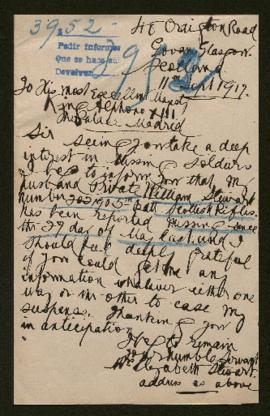 3952
Pedir informes
Que se haga su
Devolver
Craigton Road
Govan Glasgow
Scotland
11th Sept 1917.
2952
To His Most Excellent Majesty
King Alphonso XIII
Madrid
Sir Seeing you take a deep
interest in Missing Soldiers
I beg to inform you that my
husband Private William Stewart
Number Batt Scottish Rifles.
has been reported missing since
the 27 day of May last and I
should feel deeply grateful
if you could get me any
information whatever either one
way or the other to ease my
suspense. Thanking you
in anticipation
I beg to remain
your humble servant
Elizabeth Stewart.
address as above